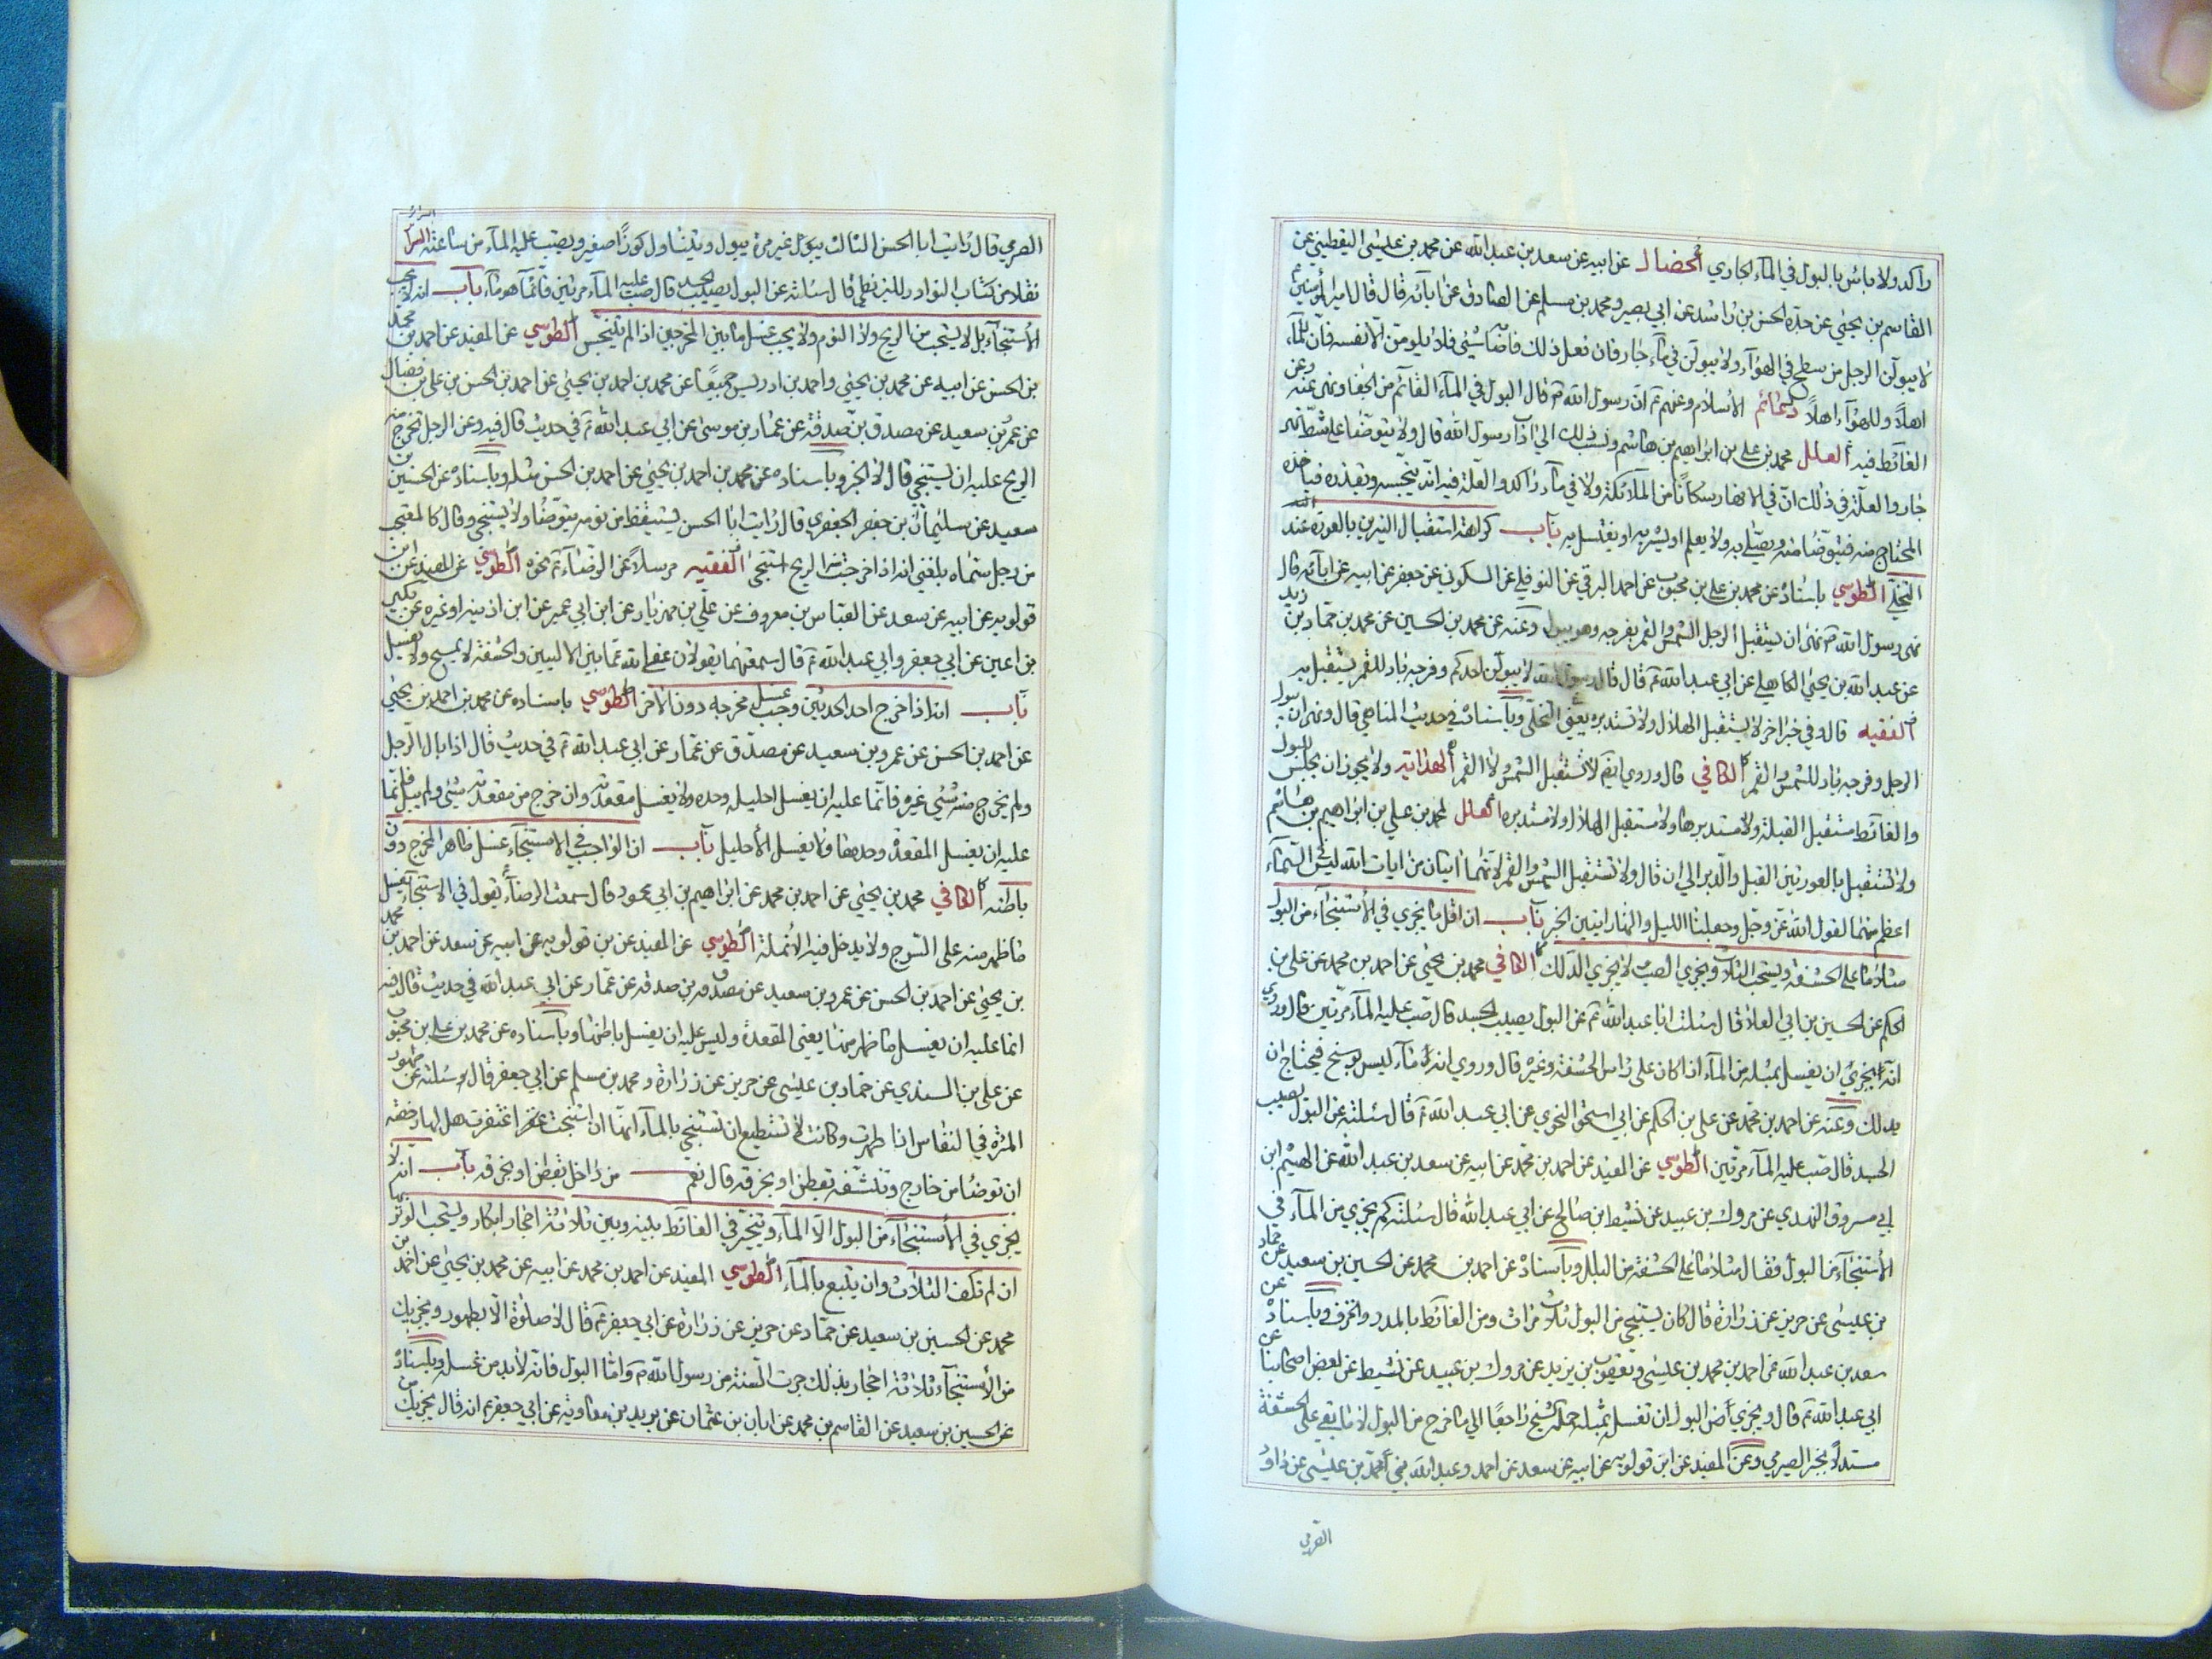 راكد ولا باس بالبول في المآء الجاري الخصال عن ابيه عن سعد بن عبد الله عن محمد بن عليسى اليقطيني عن
القاسم بن يحيى عن جده الحسن بن راشد عن ابي بصير ومحمد بن مسلم عن الصادق عن ابآئه قال قال امير المؤمنين
لا يبولن الرجل من سطح في الهوآء ولا يبولن في مآء جار فان فعل ذلك فاصابه شيئ فلا يلومن الا نفسه فان للمآء
اهلاً وللهوآء اهلاً دعائم الاسلام وعنهم ان رسول الله قال البول في المآء القائم من الجفا ونهى عنه وعن
الغائط فيه العلل محمد بن علي بن ابراهيم بن هاشم ونسب ذلك الى اداب رسول الله قال ولا يتوضا على شط نهر
جار والعلة في ذلك ان في الانهار سكانا من الملائكة ولا في مآء راكد والعلة فيه انه ينجسه ويقذره فياخذه
المحتاج منه فيتوضا منه ويصلي به ولا يعلم او يشربه او يغتسل به باب كراهة استقبال النيرين بالعورة عند
التخلي الطوسي باسناده عن محمد بن علي بن محبوب عن احمد البرقي عن النوفلي عن السكوني عن جعفر عن ابيه عن ابآئه قال
نهى رسول الله ان يستقبل الرجل الشمس والقمر بفرجه وهو يبول وعنه عن محمد بن الحسين عن محمد بن حماد بن زيد
عن عبد الله بن يحيى الكاهلي عن ابي عبد الله قال قال رسول الله لا يبولن احدكم وفرجه باد للقمر يستقبل به
الفقيه قال وفي خبر اخر لا يستقبل الهلال ولا تستدبره يعني التخلي وباسناده في حديث المناهي قال ونهى ان يبول
الرجل وفرجه باد للشمس والقمر الكافي قال وروي ايضم لا تستقبل الشمس ولا القمر الهداية ولا يجوز ان يجلس للبول
والغائط مستقبل القبلة ولا مستدبرها ولا مستقبل الهلال ولا مستدبره العلل لمحمد بن علي بن ابراهيم بن هاشم
ولا تستقبل بالعورتين القبل والدبر الى ان قال ولا تستقبل الشمس والقمر لانهما ايتان من ايات الله ليس في السمآء
اعظم منهما لقول الله عز وجل وجعلنا الليل والنهار ايتين الخبر باب ان اقل ما يجزي في الاستنجآء من البول
مثلا ما على الحشفة ويستحب الثلاث ويجزي الصب لا يجزي الدلك الكافي محمد بن يحيى عن احمد بن محمد عن علي بن
الحكم عن الحسين بن ابي العلا قال سئلت ابا عبد الله عن البول يصيب الجسد قال صب عليه المآء مرتين قال وروي
انه يجزئ ان يغسل بمثله من المآء اذا كان على راس الحشفة وغيره قال وروي انه مآء ليس بوسخ فيحتاج ان
يدلك وعنه عن احمد بن محمد عن علي بن الحكم عن ابي اسحق النحوي عن ابي عبد الله قال سئلته عن البول يصيب
الجسد قال صب عليه المآء مرتين الطوسي عن المفيد عن احمد بن محمد عن ابيه عن سعد بن عبد الله عن الهيثم ابن
ابي مسروق النهدي عن مروك بن عبيد عن نشيط بن صالح عن ابي عبد الله قال سئلته كم يجزي من المآء في
الاستنجآء من البول فقال مثلا ما على الحشفة من البلل وباسناده عن احمد بن محمد عن الحسين بن سعيد عن حماد
بن عليسى عن حريز عن زرارة قال كان يستنجي من البول ثلاث مرات ومن الغائط بالمدر والخزف وباسناده عن
سعد بن عبد الله عن احمد بن محمد بن عليسى ويعقوب بن يزيد عن مروك بن عبيد عن نشيط عن بعض اصحابنا عن
ابي عبد الله قال ويجزي من البول ان تغسل بمثله راجعا الى ما خرج من البول لا ما بقي على الحشفة
مستدلا بخبر الصرمي وعن المفيد عن ابن قولويه عن ابيه عن سعد عن احمد وعبد الله بني محمد بن عليسى عن داود
الصرمي
الصرمي قال رايت ابا الحسن الثالث يبول غير مرة يبول ويتناول كوزا صغيرا ويصب عليه المآء من ساعته السرائر
نقلا من كتاب النوادر للبزنطي قال سئلته عن البول يصيب الجسد قال صب عليه المآء مرتين فانما هو مآء باب انه لا يجب
الاستنجآء بل لا يستحب من الريح ولا النوم ولا يجب غسل ما بين المخرجين اذا لم يتنجس الطوسي عن المفيد عن احمد بن محمد
بن الحسن عن ابيه عن محمد بن يحيى واحمد بن ادريس جميعا عن محمد بن احمد بن يحيى عن احمد بن الحسن بن علي بن فضال
عن عمرو بن سعيد عن مصدق بن صدقة عن عمار بن موسى عن ابي عبد الله في حديث قال فيه وعن الرجل تخرج منه
الريح عليه ان يستنجي قال لا الخبر وباسناده عن محمد بن احمد بن يحيى عن احمد بن الحسن مثله وباسناده عن الحسين بن
سعيد عن سليمان بن جعفر الجعفري قال رايت ابا الحسن يستيقظ من نومه يتوضا ولا يستنجي وقال كالمتعجب
من رجل سماه بلغني انه اذا خرجت منه الريح استنجى الفقيه مرسلا عن الرضا نحوه الطوسي عن المفيد عن ابن
قولويه عن ابيه عن سعد عن العباس بن معروف عن علي بن مهزيار عن ابن ابي عمير عن ابن اذينه او غيره عن بكير
بن اعين عن ابي جعفر وابي عبد الله قال سمعتهما يقولان عفى الله عما بين الاليين والحشفة لا يمسح ولا يغسل
باب انه اذا خرج احد الحدثين وجب غسل مخرجه دون الاخر الطوسي باسناده عن محمد بن احمد بن يحيى
عن احمد بن الحسن عن عمرو بن سعيد عن مصدق عن عمار عن ابي عبد الله في حديث قال اذا بال الرجل
ولم يخرج منه شيئ غيره فانما عليه ان يغسل احليله وحده ولا يغسل مقعدته وان خرج من مقعدته شيئ ولم يبل فانما
عليه ان يغسل المقعدة وحدها ولا يغسل الاحليل باب ان الواجب في الاستنجآء غسل ظاهر المخرج دون
باطنه الكافي محمد بن يحيى عن احمد بن محمد عن ابراهيم بن ابي محمود قال سمعت الرضا يقول في الاستنجآء يغسل
ما ظهر منه على الشرج ولا يدخل فيه الانملة الطوسي عن المفيد عن بن قولويه عن ابيه عن سعد عن احمد بن محمد
بن يحيى عن احمد بن الحسن عن عمرو بن سعيد عن مصدق بن صدقه عن عمار عن ابي عبد الله في حديث قال فيه
انما عليه ان يغسل ما ظهر منها يعني المقعدة وليس عليه ان يغسل باطنها وباسناده عن محمد بن علي بن محبوب
عن علي بن السندي عن حماد بن عليسى عن حريز عن زرارة ومحمد بن مسلم عن ابي جعفر قال سئلته عن طهور
المرئة في النفاس اذا طهرت وكانت لا تستطيع ان تستنجي بالمآء انها ان استنجت اعتقرت هل لها رخصة
ان توضا من خارج وتنشفه بقطن او بخرقه قال نعم من داخل بقطن او بخرقه باب انه لا
يجزي في الاستنجآء من البول الا المآء ويتخير في الغائط بينه وبين ثلاثة احجار ابكار ويستحب الوتر بها
ان لم تكف الثلاث وان يتبع بالمآء الطوسي المفيد عن احمد بن محمد عن ابيه عن محمد بن يحيى عن احمد بن
محمد عن الحسين بن سعيد عن حماد عن حريز عن زرارة عن ابي جعفر قال لا صلوة الا بطهور ويجزيك
من الاستنجآء ثلاثة احجار بذلك جرت السنة من رسول الله واما البول فانه لابد من غسله وباسناده
عن الحسين بن سعيد عن القاسم بن محمد عن ابان بن عثمان عن بريد بن معاويه عن ابي جعفر انه قال يجزيك من